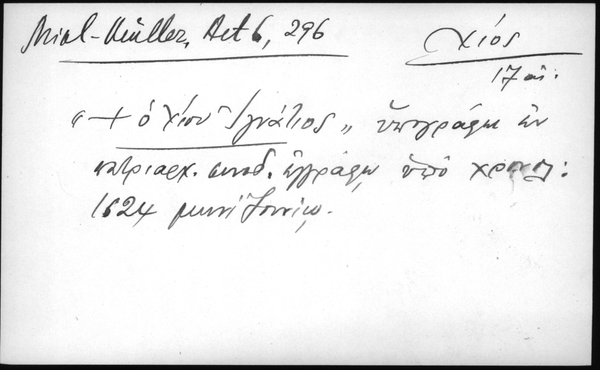 Mikl-Müller, Act 6, 296
Χίος
17 αἰ.
"+ ὁ Χίου Ἰγνάτιος„ ὑπογράφει ἐν
πατριαρχ. συνοδ. ἐγγράφῳ, ὑπὸ χρονολ:
1624 μηνὶ Ἰουνίῳ.